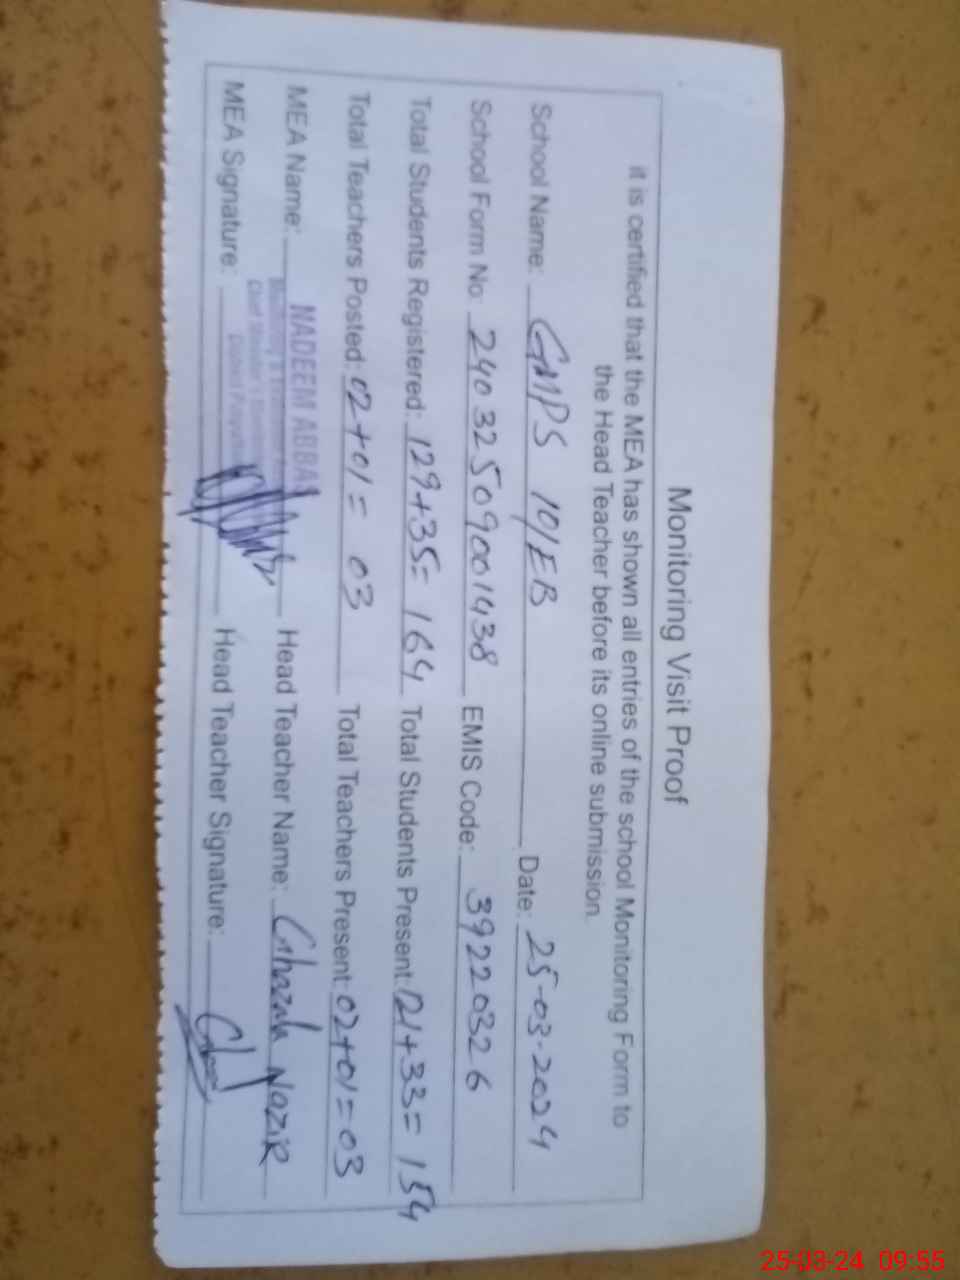 Monitoring Visit Proof
it is certified that the MEA has shown all entries of the school Monitoring Form to
the Head Teacher before its online submission.
School Name: GMPS 10/EB Date: 25-03-2024
School Form No: 24032509001438 EMIS Code: 39220326
Total Students Registered: 129+35= 164 Total Students Present: 121+33= 154
Total Teachers Posted: 02+01= 03 Total Teachers Present: 02+01=03
MEA Name: NADEEM ABBAS Head Teacher Name: Ghazala Nazir
MEA Signature: Head Teacher Signature:
25-03-24 09:55